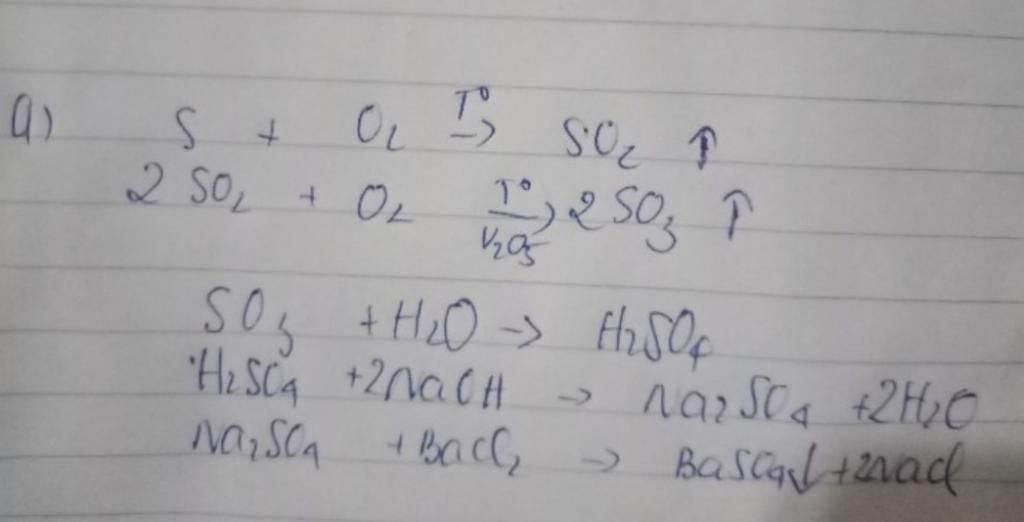 a) S + O₂ T° → SO₂ ↑
2 SO₂ + O₂ T° → V₂O₅ 2 SO₃ ↑
SO₃ + H₂O → H₂SO₄
H₂SO₄ + 2NaOH → Na₂SO₄ + 2H₂O
Na₂SO₄ + BaCl₂ → BaSO₄↓ + 2NaCl